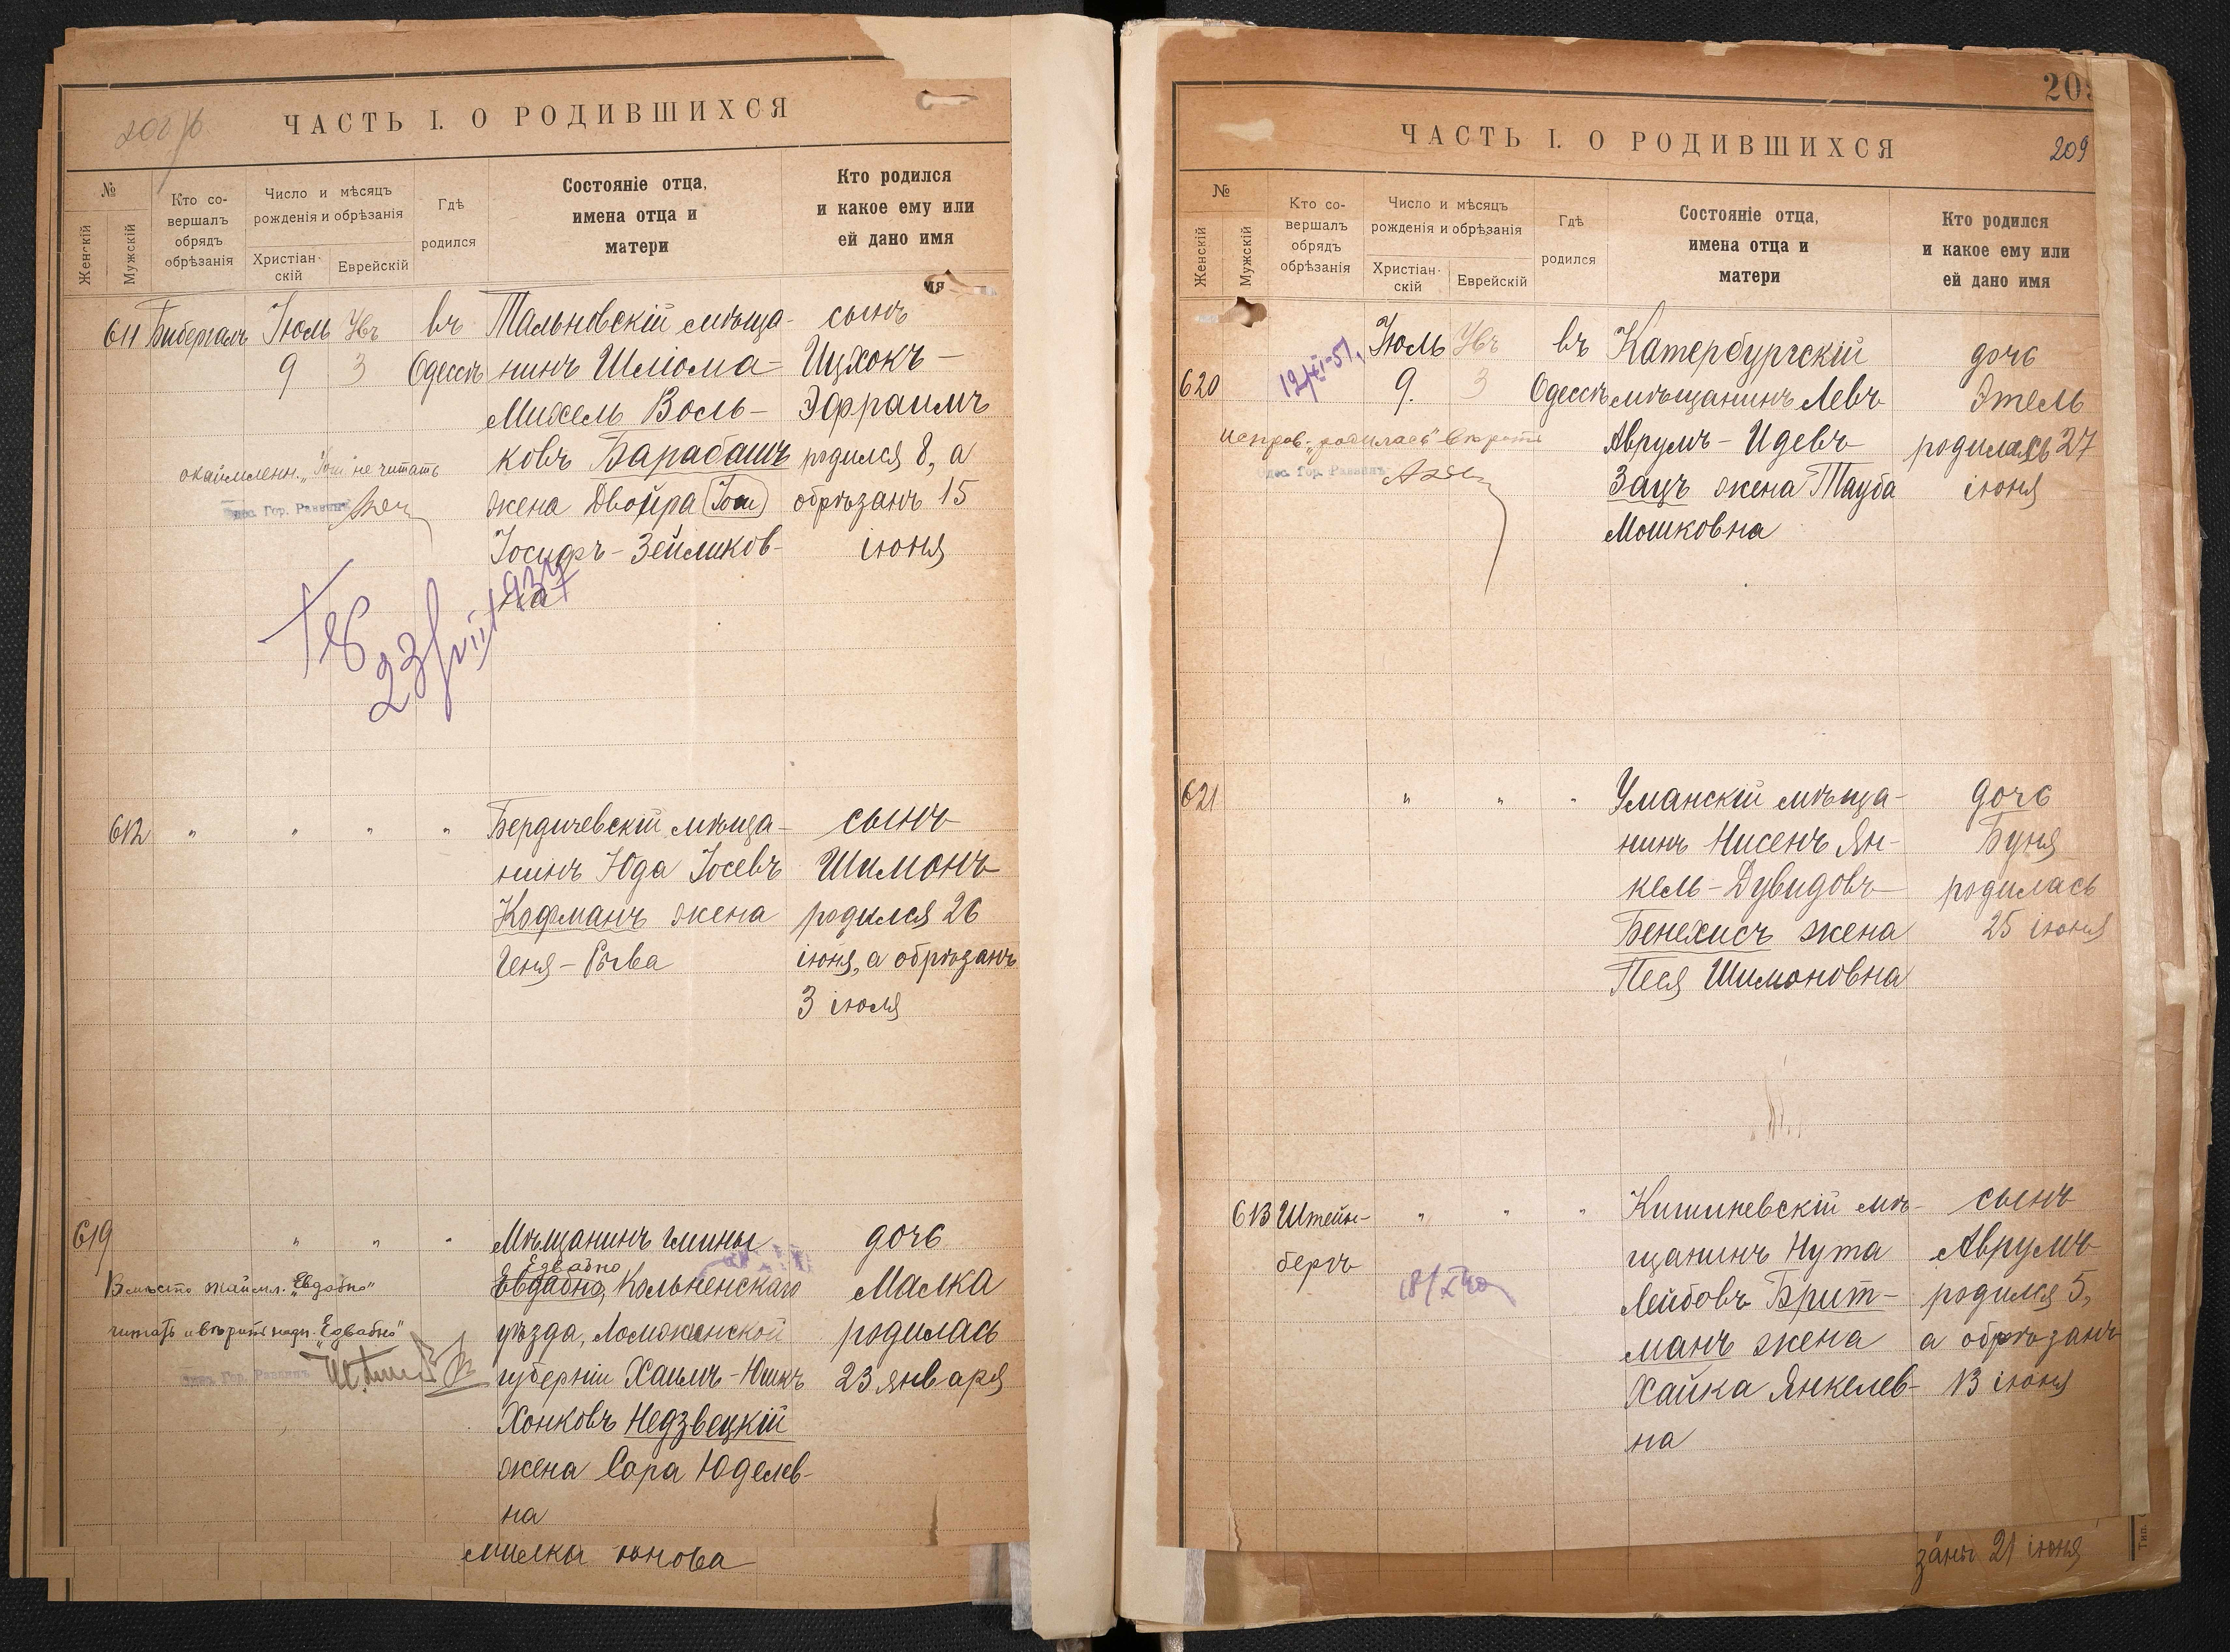 ЧАСТЬ I. О РОДИВШИХСЯ
№
Женскій
Мужскій
Кто со-
вершалъ
обрядъ
обрѣзанія
Число и мѣсяцъ
рожденія и обрѣзанія
Христіан-
скій
Еврейскій
Гдѣ
родился
Состояніе отца,
имена отца и
матери
Кто родился
и какое ему или
ей дано имя
мя
611 Бибергалъ Іюль
9
3
въ
Одессѣ
Тальновскій мѣща-
нинъ Шліома-
Михель Воль-
ковъ Барабашъ
жена Двойра (Іош)
Іосифъ-Зейликов-
на
сынъ
Ицхокъ-
Эфраимъ
родился 8, а
обрѣзанъ 15
іюня
окаймленн. „Іош" не читать
Одес. Гор. Раввинъ
612 " " " "
Бердичевскій мѣща-
нинъ Юда Іосевъ
Кофманъ жена
Геня-Рива
сынъ
Шимонъ
родился 26
іюня, а обрѣзанъ
3 іюля
619 " " "
Мѣщанинъ гмины
Едвабно
Евдабно, Кольненскаго
уѣзда, Ломжинской
губерніи Хаимъ-
Хонковъ Недзвецкій
жена Сора Юделев-
на
дочь
Малка
родилась
23 января
Вмѣсто окаймл. „Евдабно"
читать и вѣрить надп. „Едвабно"
Одес. Гор. Раввинъ
209
ЧАСТЬ I. О РОДИВШИХСЯ
№
Женскій
Мужскій
Кто со-
вершалъ
обрядъ
обрѣзанія
Число и мѣсяцъ
рожденія и обрѣзанія
Христіан-
скій
Еврейскій
Гдѣ
родился
Состояніе отца,
имена отца и
матери
Кто родился
и какое ему или
ей дано имя
620
12/XI-51,
Іюль
9.
3
въ
Одессѣ
Катербургскій
мѣщанинъ Левъ
Аврумъ-Идевъ
Зацъ жена Тауба
Мошковна
дочь
Этель
родилась 27
іюня
испров. „родилась" вѣрить
Одес. Гор. Раввинъ
621 " " "
Уманскій мѣща-
нинъ Нисенъ Ян-
кель-Дувидовъ
Бенехисъ жена
Песя Шимоновна
дочь
Буня
родилась
25 іюня
613 Штейн-
бергъ
" " "
Кишиневскій мѣ-
щанинъ Нута
Лейбовъ Брит-
манъ жена
Хайка Янкелев-
на
сынъ
Аврумъ
родился 5,
а обрѣзанъ
13 іюня
заны 21 іюня